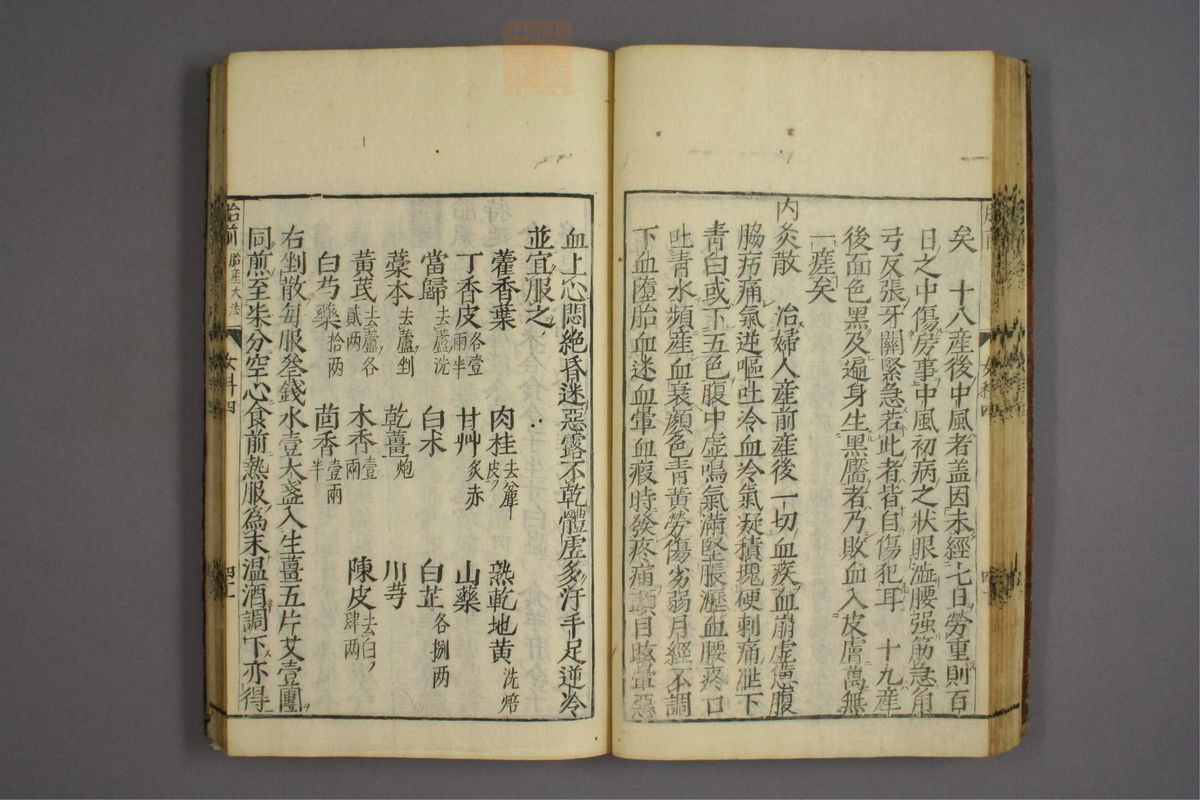 矣　十八産後中風者盖因未經七日勞重則百
日之中傷房事中風初病之状眼澁腰强筋急角
弓反張牙關緊急若此者皆自傷犯耳　十九産
後面色黑及遍身生黑黶者乃敗血入皮膚萬無
一瘥矣
内灸散　治婦人産前産後一切血疾血崩虚憊腹
脇疞痛氣逆嘔吐冷血冷氣凝積塊硬刺痛泄下
青白或下五色腹中虚鳴氣滿堅脹瀝血腰疼口
吐青水頻産血衰顔色青黄勞傷劣弱月經不調
下血墮胎血迷血暈血瘕時發疼痛頭目眩暈惡
血上心悶絶昏迷惡露不乾體虚多汗手足逆冷
並宜服之
藿香葉　肉桂去麁皮　熟乾地黄洗焙
丁香皮各壹兩半　甘艸炙赤　山藥
當歸去蘆洗　白朮　白芷各捌两
藁本去蘆剉　乾薑炮　川芎
黄茋去蘆各貳两　木香壹兩　陳皮去白肆两
白芍藥拾两　茴香壹兩半
右剉散每服叁錢水壹大盞入生薑五片艾壹團
同煎至柒分空心食前熱服為末温酒調下亦得
胎前　胎産大法　女科四